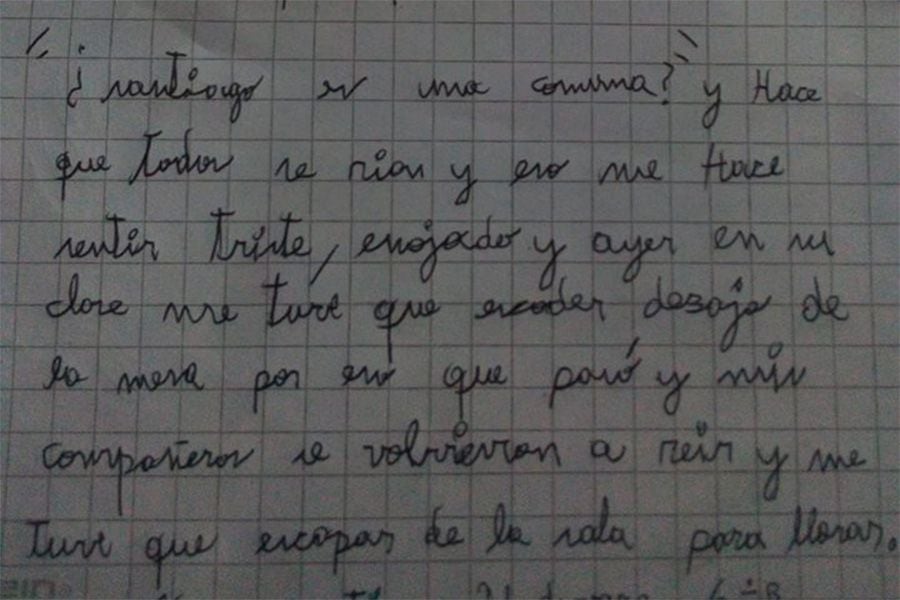 "¿santiago es una comuna?" y Hace
que todos se rian y eso me Hace
sentir triste, enojado y ayer en su
clase me tuve que escoder desajo de
la mesa por eso que pasó y mis
compañeros se volvieron a reir y me
tuve que escapar de la sala para llorar.